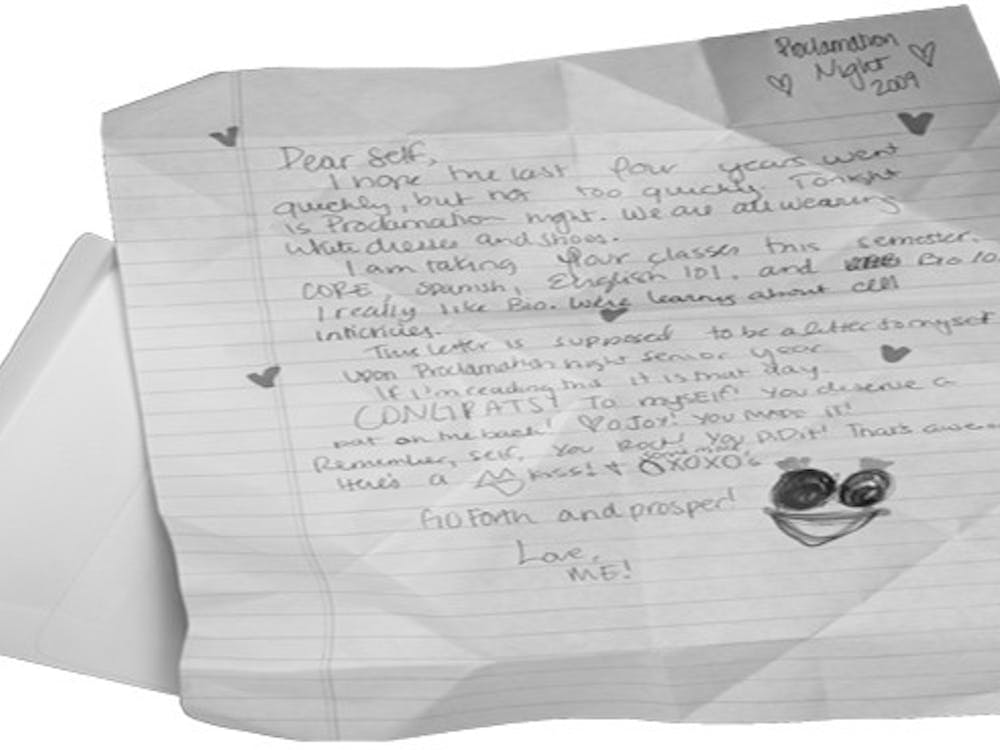 Proclamation
Night
2009
Dear Self,
I hope the last four years went
quickly, but not too quickly. Tonight
is Proclamation night. We are all wearing
white dresses and shoes.
I am taking four classes this semester.
CORE, Spanish, English 101, and Bio 10
I really like Bio. We're learning about cell
intricicies.
This letter is supposed to be a letter to myself
upon Proclamation night senior year.
If I'm reading this it is that day.
CONGRATS! To mySElf! You deserve a
pat on the back! O JOY! YOU MADE IT!
Remember, self, You Rock! You DiDit! That's awe
Here's a kiss! + some more OXOXO's
Go Forth and prosper!
Love,
ME!